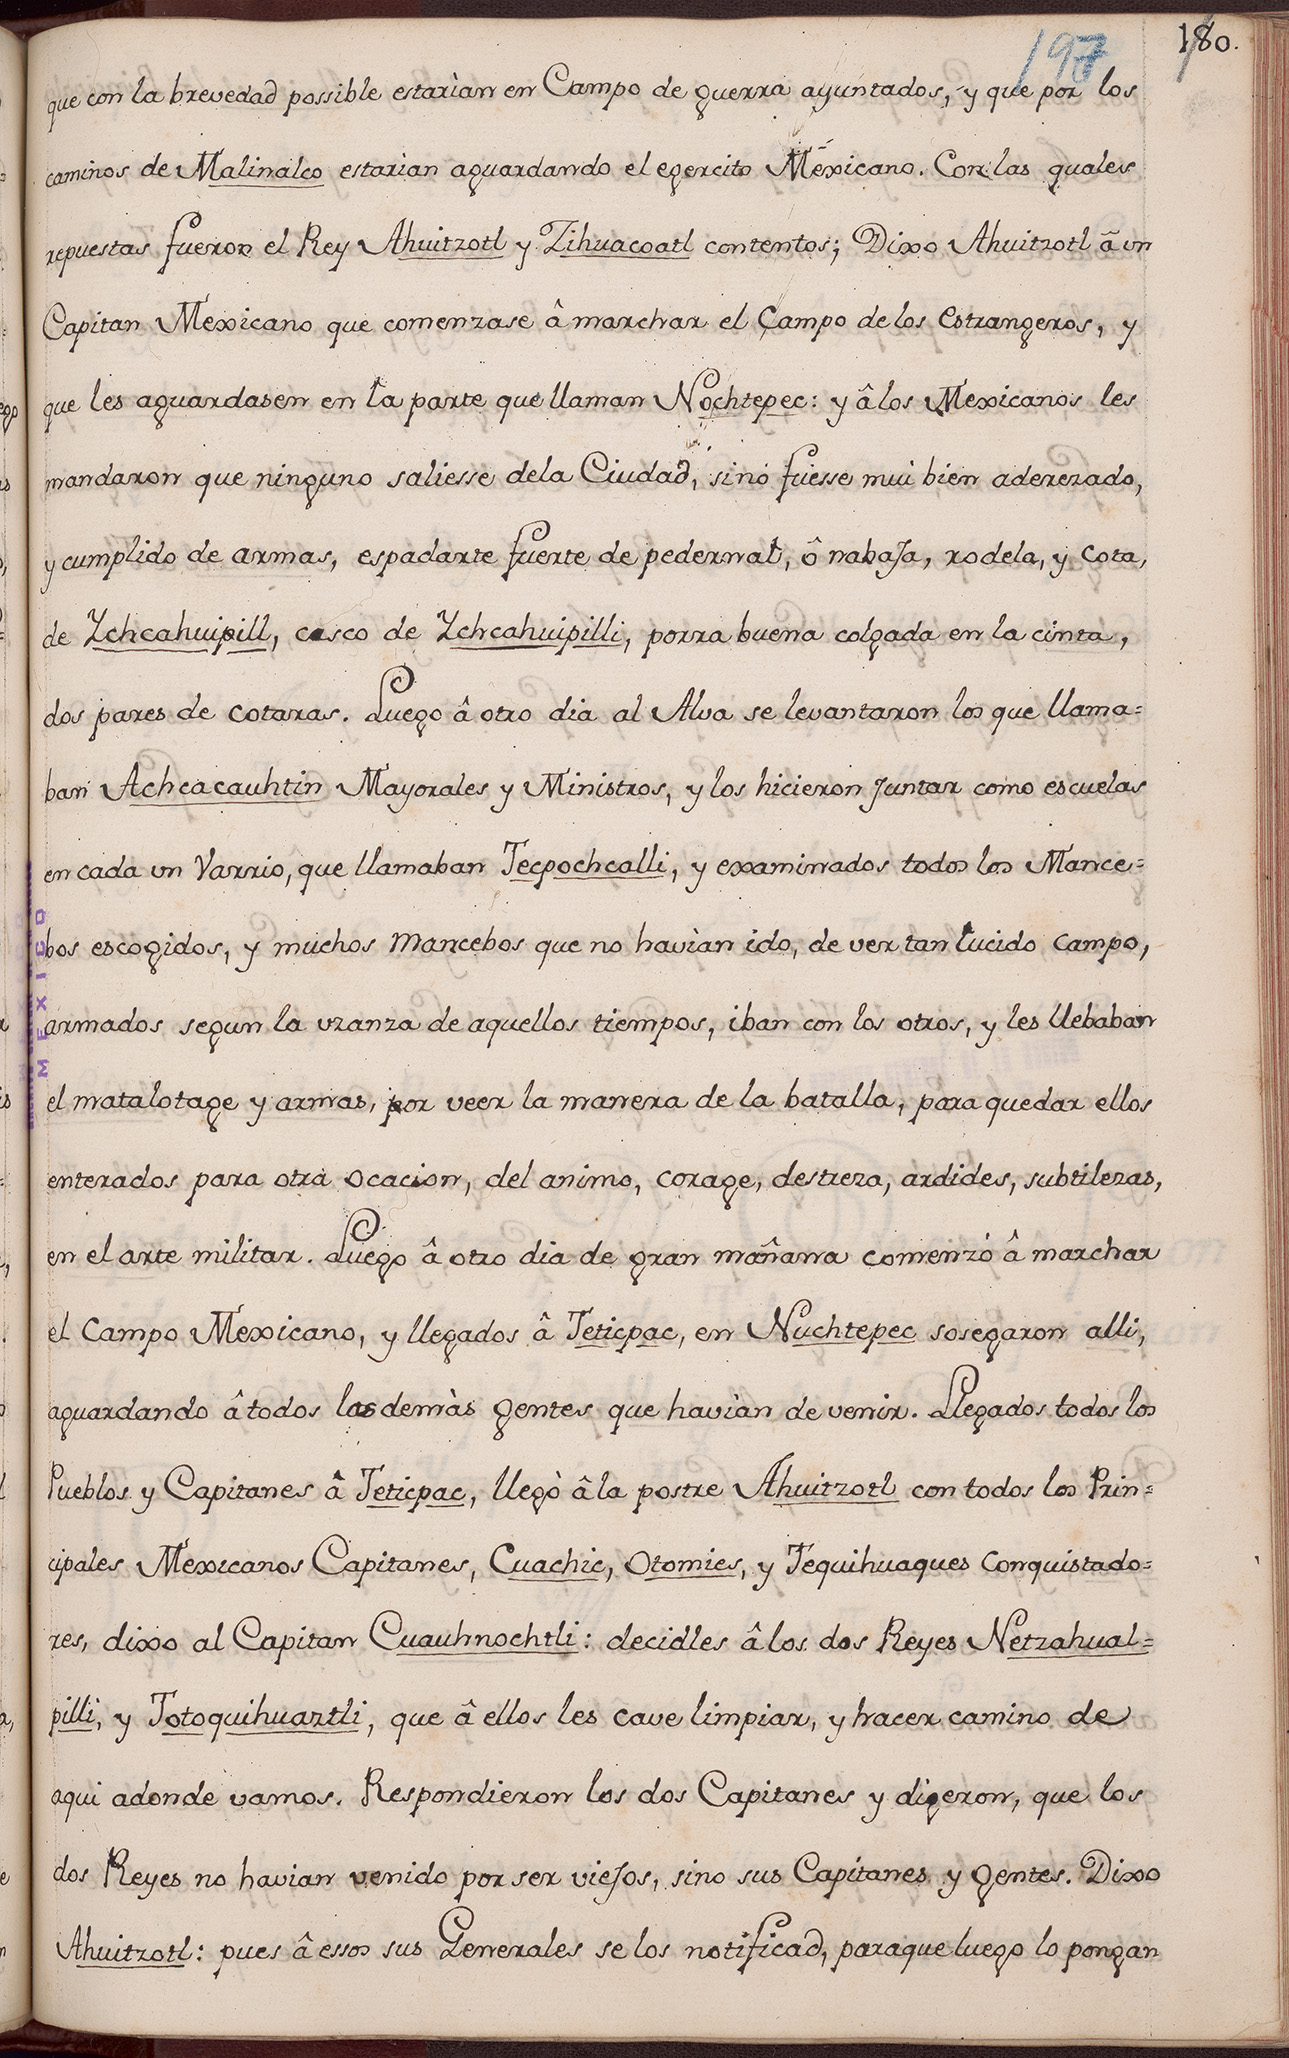 197
180.
que con la brevedad possible estarìan en Campo de guerra ayuntados, y que por los
caminos de Malinalco estarìan aguardando el egercito Mexicano. Con las quales
repuestas fueron el Rey Ahuitzotl y Zihuacoatl contentos; Dixo Ahuitzotl â un
Capitan Mexicano que comenzase â marchar el Campo de los Estrangeros, y
que les aguardasen en la parte que llaman Nochtepec: y â los Mexicanos les
mandaron que ninguno saliesse dela Ciudad, sino fuesse mui bien aderezado,
y cumplido de armas, espadarte fuerte de pedernal, ô nabaja, rodela, y cota,
de Ychcahuipill, casco de Ychcahuipilli, porra buena colgada en la cinta,
dos pares de cotaras. Luego â otro dia al Alva se levantaron los que llama=
ban Achcacauhtin Mayorales y Ministros, y los hicieron juntar como escuelas
en cada un Varrio, que llamaban Tecpochcalli, y examinados todos los Mance=
bos escogidos, y muchos Mancebos que no havìan ido, de ver tan lucido campo,
armados segun la uzanza de aquellos tiempos, iban con los otros, y les llebaban
el matalotage y armas, por veer la manera de la batalla, para quedar ellos
enterados para otra ocacion, del animo, corage, destreza, ardides, subtilezas,
en el arte militar. Luego â otro dia de gran mañana comenzó â marchar
el Campo Mexicano, y llegados â Teticpac, en Nuchtepec sosegaron alli,
aguardando â todos las demàs gentes que havìan de venir. Llegados todos los
Pueblos y Capitanes â Teticpac, llegò â la postre Ahuitzotl con todos los Prin=
cipales Mexicanos Capitanes, Cuachic, Otomies, y Tequihuaques Conquistado=
res, dixo al Capitan Cuauhnochtli: decidles â los dos Reyes Netzahual=
pilli, y Totoquihuaztli, que â ellos les cave limpiar, y hacer camino de
aqui adonde vamos. Respondieron los dos Capitanes y digeron, que los
dos Reyes no havian venido por ser viejos, sino sus Capitanes y gentes. Dixo
Ahuitzotl: pues â essos sus Generales se los notificad, paraque luego lo pongan
MEXICO